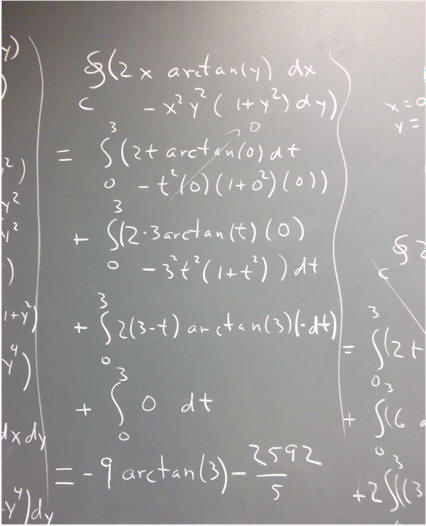 ∮(2x arctan(y) dx
C - x²y²(1+y²)dy)
= ∫₀³(2t arctan(0) dt
- t²(0)(1+0²)(0)) → 0
+ ∫₀³(2·3arctan(t)(0)
- 3²t²(1+t²))dt
+ ∫₀³ 2(3-t) arctan(3)(-dt)
+ ∫₀³ 0 dt
= -9 arctan(3) - 2592/5
y)
)
²)
y²
y²
)
1+y²)
y⁴)
dxdy
-y⁴)dy
x=0
y=
∮ 2
C
= ∫₀³(2t
+ ∫₀³(6
+ 2∫₀³((3